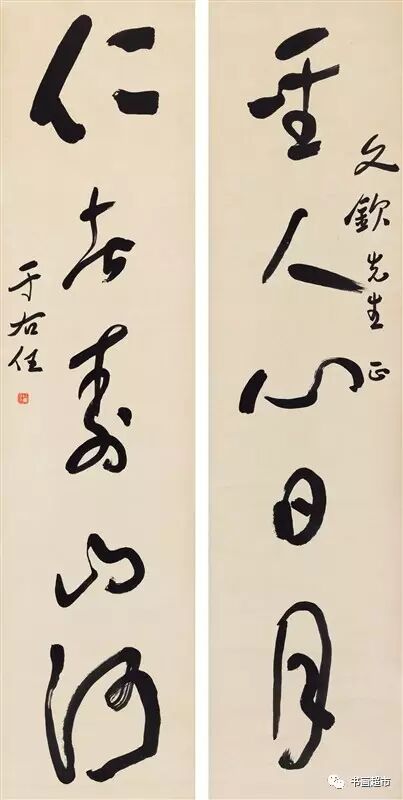 文钦先生正
圣人心日月
仁者寿山河
于右任
书画超市